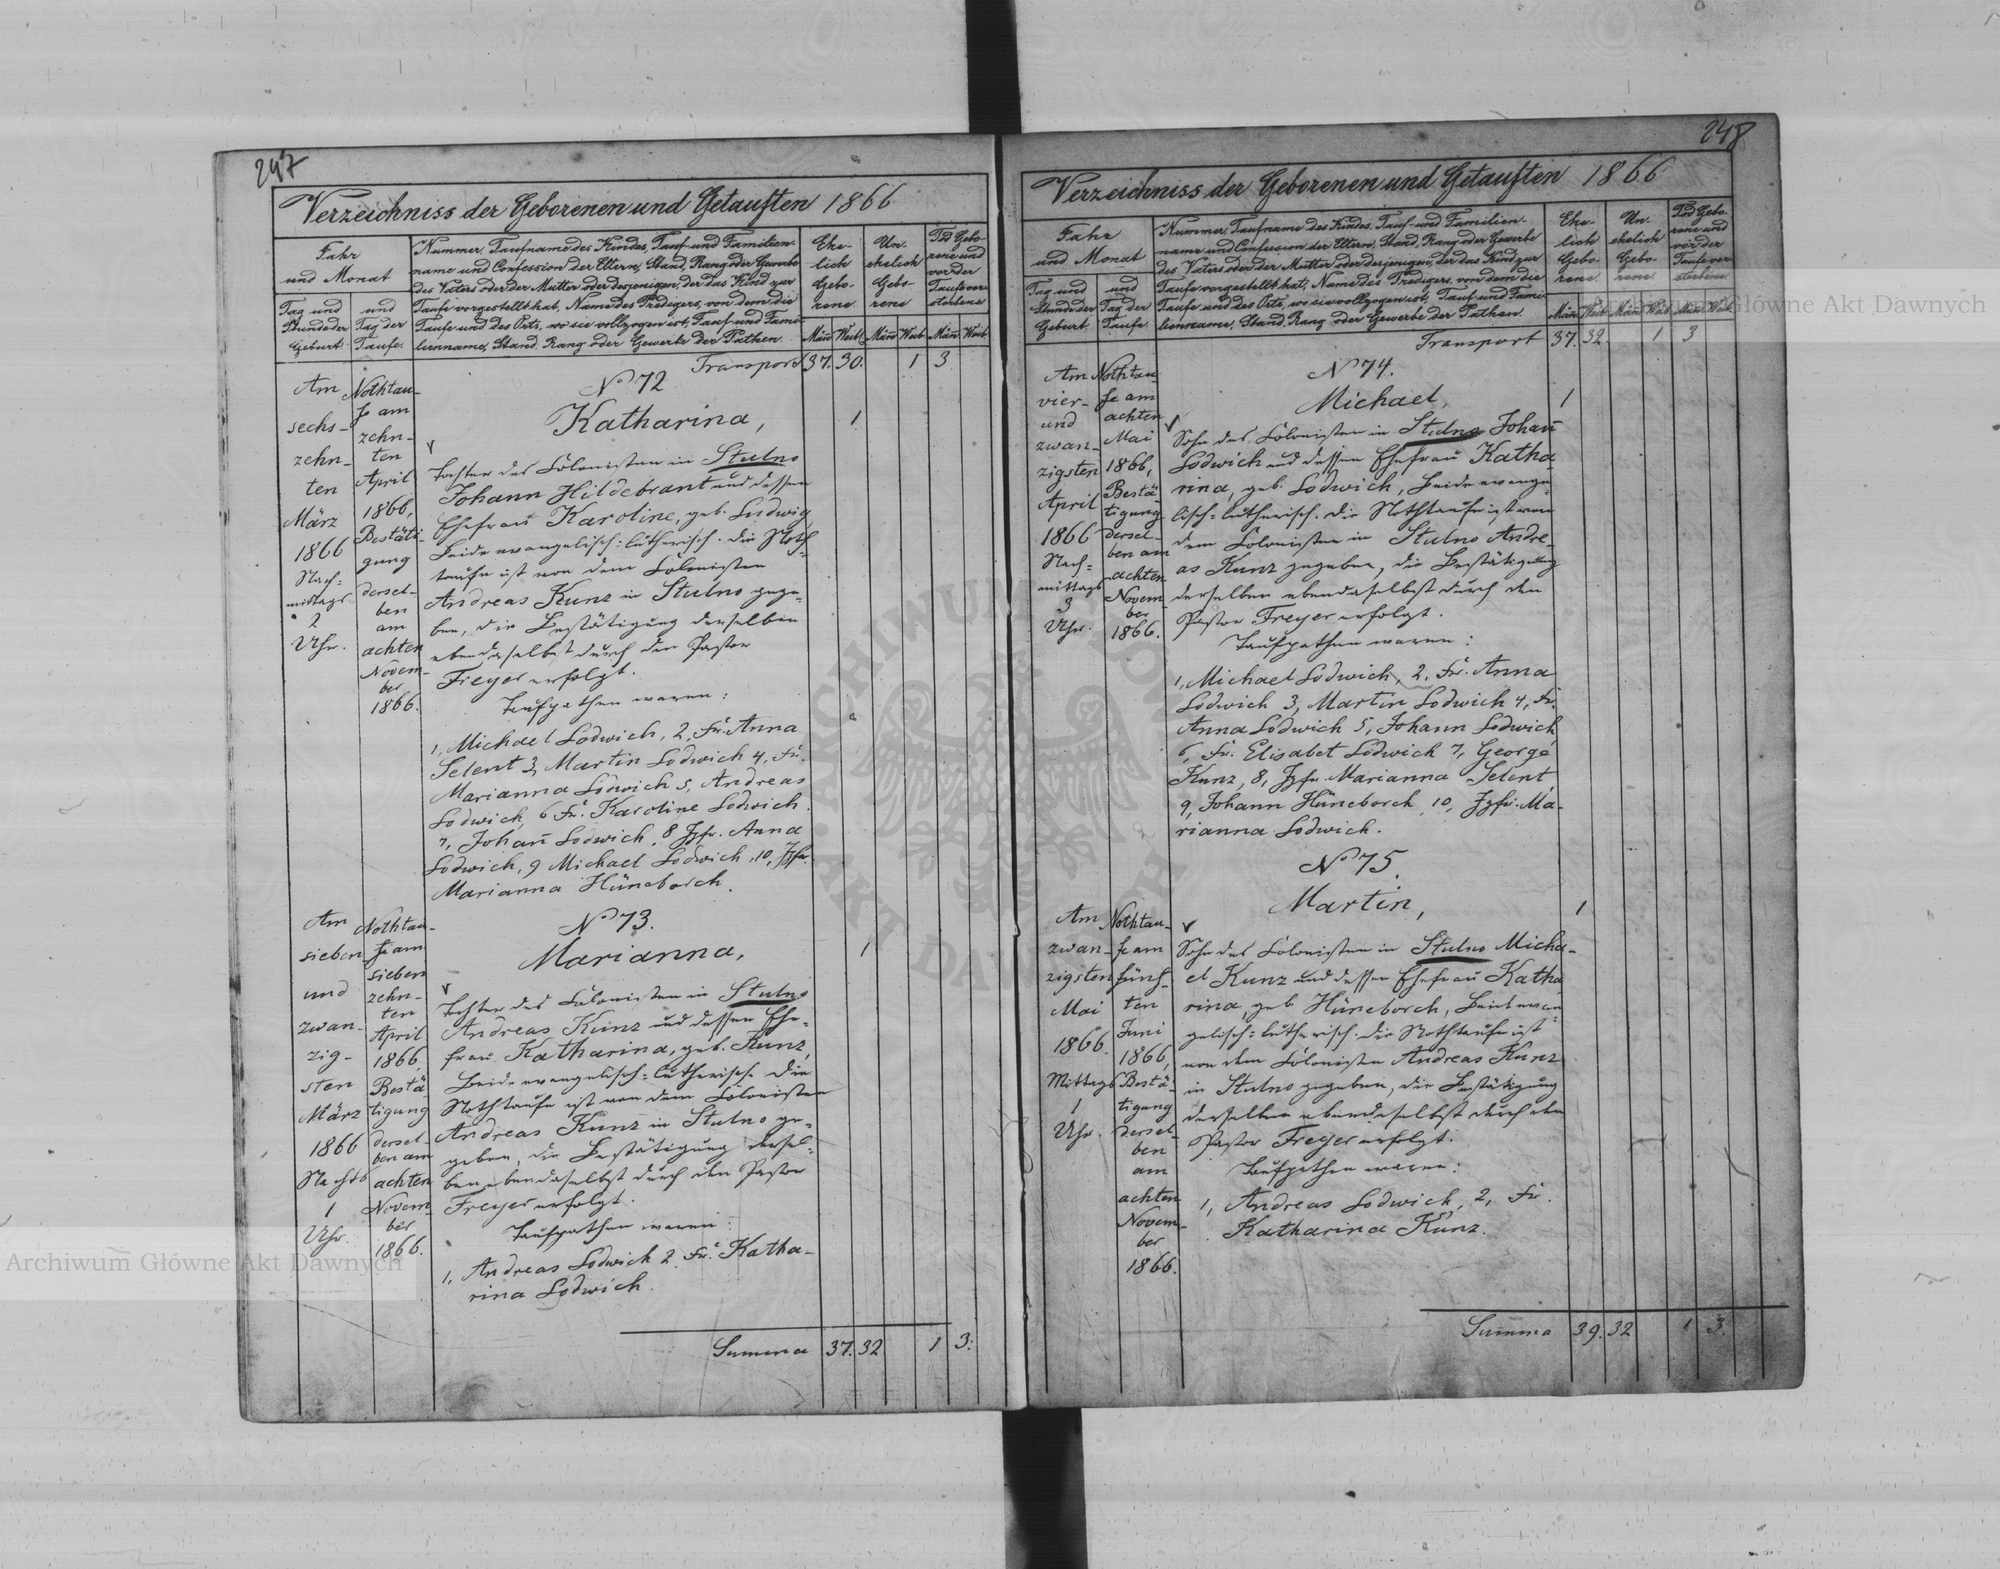 247
Verzeichniss der Geborenen und Getauften 1866
Jahr
und Monat
Tag und
Stunde der
Geburt.
und
Tag der
Taufe.
Nummer, Taufname des Kindes, Tauf- und Familien-
name und Confession der Eltern, Stand, Rang oder Gewerbe
des Vaters oder der Mutter oder desjenigen, der das Kind zur
Taufe vorgestellt hat, Name des Predigers, von dem die
Taufe und des Orts, wo sie vollzogen ist, Tauf- und Fami-
lienname, Stand, Rang oder Gewerbe der Pathen.
Ehe-
lich
Gebo-
rene
Un-
ehelich
Gebo-
rene
Tod Gebo-
rene und
vor der
Taufe ver-
storbene
Män Weib. Män Weib. Män Weib.
Transport 37. 30. 1 3
Am
sechs-
zehn-
ten
März
1866
Nach-
mittags
2
Uhr.
Nothtau-
fe am
zehn-
ten
April
1866,
Bestäti-
gung
dersel-
ben
am
achten
Novem-
ber
1866.
No 72
Katharina, 1
Tochter des Colonisten in Stulno
Johann Hildebrant und dessen
Ehefrau Karoline, geb. Ludwig
Beide evangelisch-lutherisch. Die Noth-
taufe ist von dem Colonisten
Andreas Kunz in Stulno gege-
ben, die Bestätigung derselben
ebendaselbst durch den Pastor
Freyer erfolgt.
Taufpathen waren:
1, Michael Lodwich, 2, Fr. Anna
Selent 3, Martin Lodwich 4, Fr.
Marianna Lodwich 5, Andreas
Lodwich 6 Fr. Karoline Lodwich
7, Johañ Lodwich, 8 Jgfr. Anna
Lodwich, 9 Michael Lodwich, 10, Jgfr.
Marianna Hüneborch.
Am
sieben
und
zwan-
zig-
sten
März
1866
Nachts
1
Uhr.
Nothtau-
fe am
sieben
zehn-
ten
April
1866
Bestä
tigung
dersel-
ben am
achten
Novem-
ber
1866.
No 73.
Marianna, 1
Tochter des Colonisten in Stulno
Andreas Kunz und dessen Ehe-
frau Katharina, geb. Kunz,
Beide evangelisch-lutherisch. Die
Nothtaufe ist von dem Colonisten
Andreas Kunz in Stulno ge-
geben, die Bestätigung dersel-
ben ebendaselbst durch den Pastor
Freyer erfolgt.
Taufpathen waren:
1, Andreas Lodwich 2, Fr. Katha-
rina Lodwich.
Summa 37. 32 1 3.
248
Verzeichniss der Geborenen und Getauften 1866
Jahr
und Monat
Tag und
Stunde der
Geburt.
und
Tag der
Taufe.
Nummer, Taufname des Kindes, Tauf- und Familien-
name und Confession der Eltern, Stand, Rang oder Gewerbe
des Vaters oder der Mutter oder desjenigen, der das Kind zur
Taufe vorgestellt hat, Name des Predigers, von dem die
Taufe und des Orts, wo sie vollzogen ist, Tauf- und Fami-
lienname, Stand, Rang oder Gewerbe der Pathen.
Ehe-
lich
Gebo-
rene
Un-
ehelich
Gebo-
rene
Tod Gebo-
rene und
vor der
Taufe ver-
storbene
Män Weib. Män Weib. Män Weib.
Transport 37. 32. 1 3
Am
vier-
und
zwan-
zigsten
April
1866
Nach-
mittags
3
Uhr.
Nothtau-
fe am
achten
Mai
1866,
Bestä-
tigung
dersel-
ben am
achten
Novem-
ber
1866.
No 74.
Michael, 1
Sohn des Colonisten in Stulno Johañ
Lodwich und dessen Ehefrau Katha-
rina, geb. Lodwich, Beide evange-
lisch-lutherisch. Die Nothtaufe ist von
dem Colonisten in Stulno Andre-
as Kunz gegeben, die Bestätigung
derselben ebendaselbst durch den
Pastor Freyer erfolgt.
Taufpathen waren:
1, Michael Lodwich, 2, Fr. Anna
Lodwich 3, Martin Lodwich 4, Fr.
Anna Lodwich 5, Johann Lodwich
6, Fr. Elisabet Lodwich 7, George
Kunz, 8, Jgfr. Marianna Selent
9, Johann Hüneborch, 10, Jgfr. Ma-
rianna Lodwich.
Am
zwan-
zigsten
Mai
1866.
Mittags
1
Uhr.
Nothtau-
fe am
fünf-
ten
Juni
1866,
Bestä-
tigung
dersel-
ben
am
achten
Novem-
ber
1866.
No 75.
Martin, 1
Sohn des Colonisten in Stulno Micha-
el Kunz und dessen Ehefrau Katha-
rina, geb. Hüneborch, Beide evan-
gelisch-lutherisch. Die Nothtaufe ist
von dem Colonisten Andreas Kunz
in Stulno gegeben, die Bestätigung
derselben ebendaselbst durch den
Pastor Freyer erfolgt.
Taufpathen waren:
1, Andreas Lodwich, 2, Fr.
Katharina Kunz.
Summa 39. 32 1 3.
Archiwum Główne Akt Dawnych
Archiwum Główne Akt Dawnych